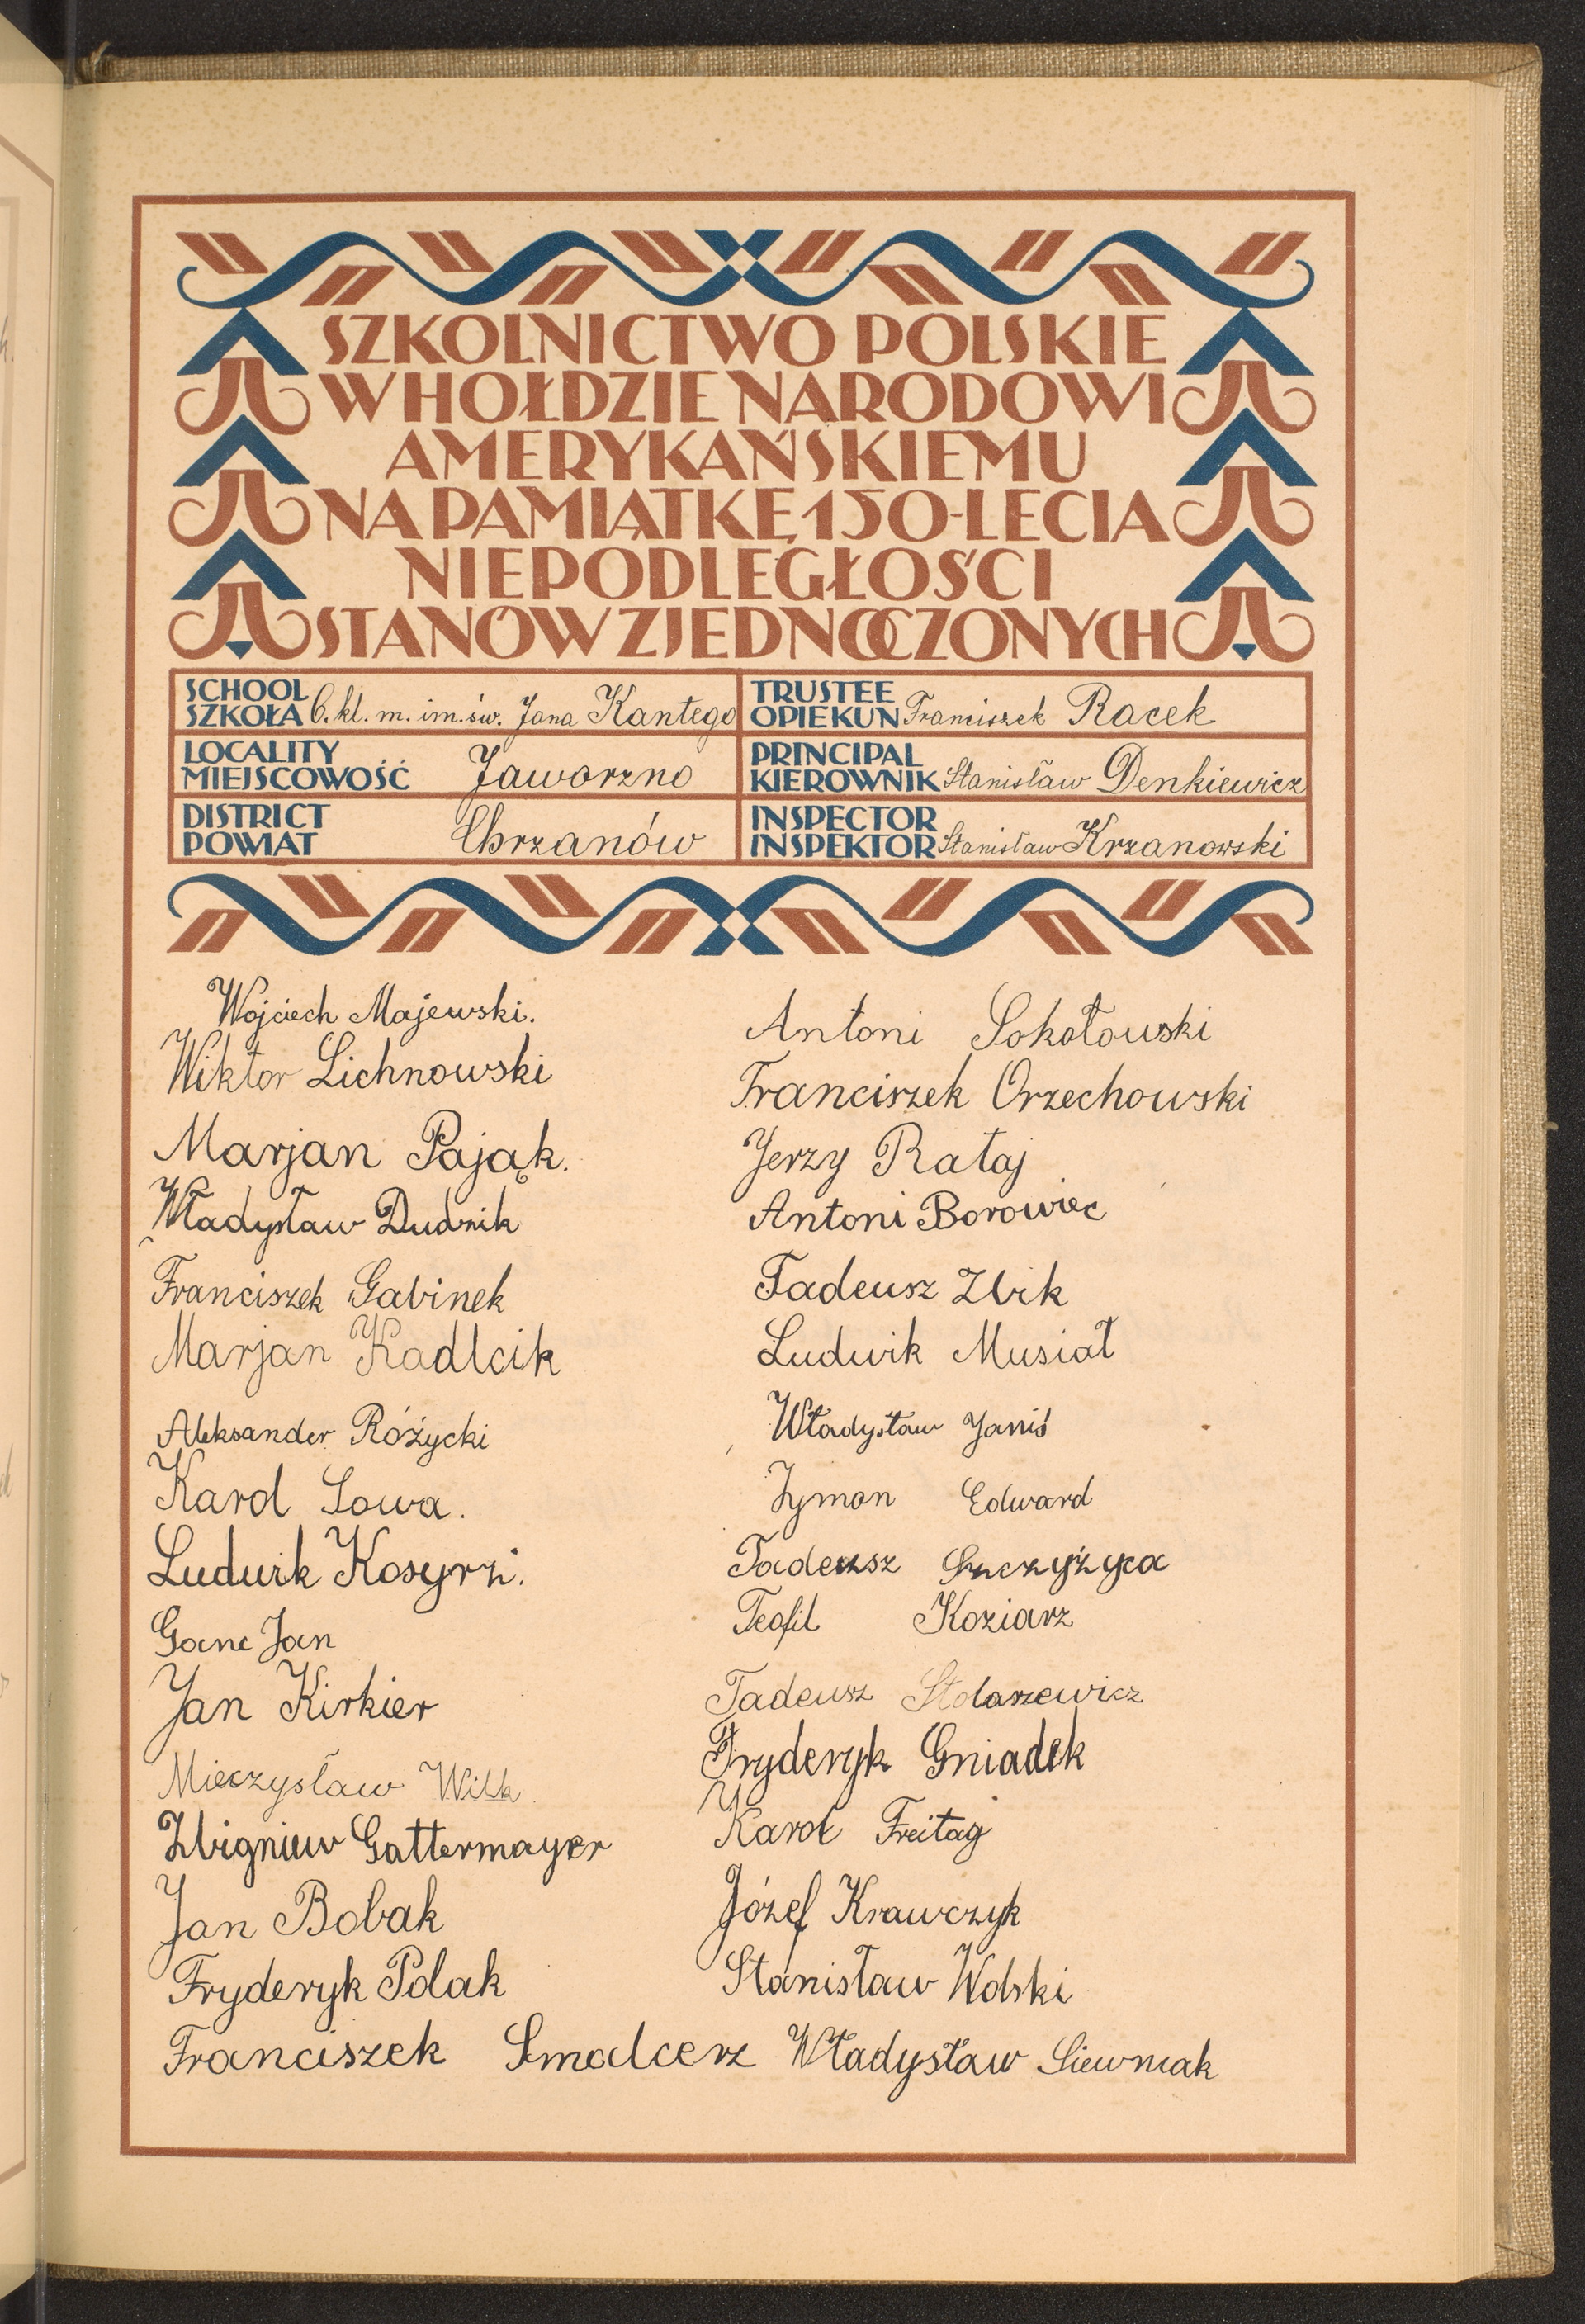 SZKOLNICTWO POLSKIE
W HOŁDZIE NARODOWI
AMERYKAŃSKIEMU
NA PAMIĄTKĘ 150-LECIA
NIEPODLEGŁOŚCI
STANÓW ZJEDNOCZONYCH
SCHOOL
SZKOŁA 6. kl. m. im. św. Jana Kantego
TRUSTEE
OPIEKUN Franciszek Racek
LOCALITY
MIEJSCOWOŚĆ Jaworzno
PRINCIPAL
KIEROWNIK Stanisław Denkiewicz
DISTRICT
POWIAT Chrzanów
INSPECTOR
INSPEKTOR Stanisław Krzanowski
Wojciech Majewski.
Wiktor Lichnowski
Marjan Pająk.
Władysław Dudzik
Franciszek Gabinek
Marjan Kadlcik
Aleksander Różycki
Karol Sowa.
Ludwik Kosyrz.
Ganc Jan
Jan Kirkier
Mieczysław Wilk
Zbigniew Gattermayer
Jan Bobak
Fryderyk Polak
Franciszek Smalcerz
Antoni Sokołowski
Franciszek Orzechowski
Jerzy Rataj
Antoni Borowiec
Tadeusz Żbik
Ludwik Musiał
Władysław Janiś
Zymon Edward
Tadeusz Szczyżyca
Teofil Koziarz
Tadeusz Stolarzewicz
Fryderyk Gniadek
Karol Freitag
Józef Krawczyk
Stanisław Wolski
Władysław Siewniak